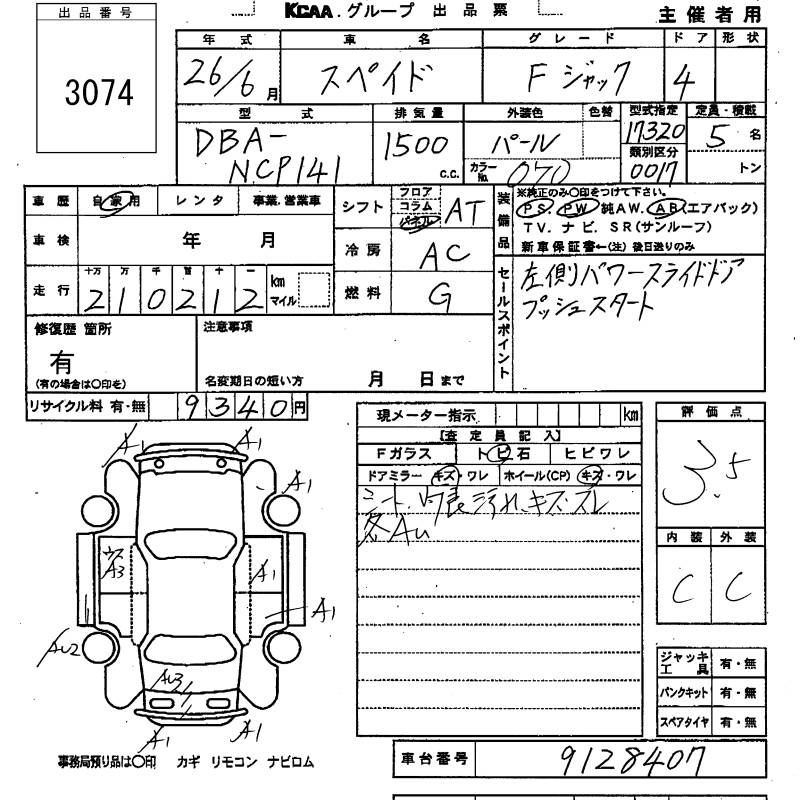 出品番号
KCAA.グループ 出品票
主催者用
3074
年式 車名 グレード ドア 形状
26/6月 スペイド F ジャック 4
型式 排気量 外装色 色替 型式指定 定員・積載
DBA-NCP141 1500 c.c. パール 17320 5名
カラーNo. 070 類別区分 0017 トン
車歴 自家用 レンタ 事業.営業車 シフト フロア コラム パネル AT
装備品 ※純正のみ〇印をつけて下さい。
PS. PW 純AW. AB(エアバック)
TV. ナビ. SR(サンルーフ)
新車保証書←(注) 後日送りのみ
車検 年 月 冷房 AC
走行 十万 万 千 百 十 一 km マイル
210212
燃料 G
セールスポイント
左側パワースライドドア
プッシュスタート
修復歴 箇所
有
(有の場合は〇印を)
注意事項
名変期日の短い方 月 日まで
リサイクル料 有・無 9340円
現メーター指示 km
【査定員記入】
Fガラス トビ石 ヒビワレ
ドアミラー キズ・ワレ ホイール(CP) キズ・ワレ
シート、内張汚れ、キズ・スレ
各AU
評価点
3.5
内装 外装
C C
A1 A1
A1
ウス A3 A1
A1
AU2
AU3
A1 A1
ジャッキ 工具 有・無
パンクキット 有・無
スペアタイヤ 有・無
事務局預り品は〇印 カギ リモコン ナビロム
車台番号 9128407